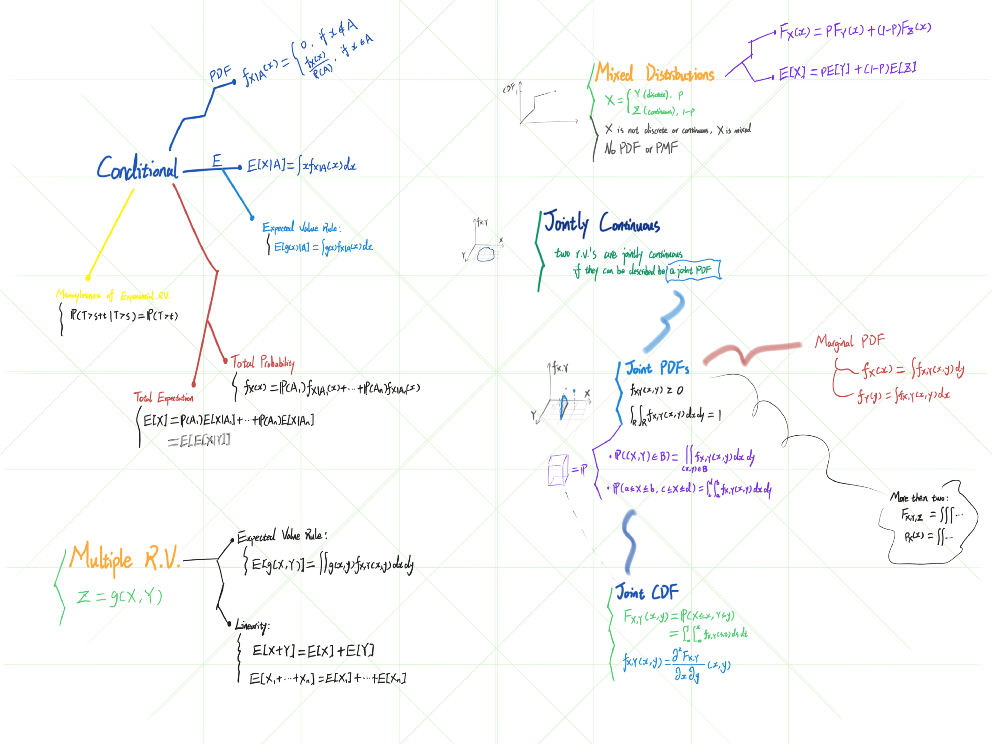 PDF
f_{X|A}(x) = { 0, if x ∉ A
f_X(x)/P(A), if x ∈ A
Conditional
E
E[X|A] = ∫ x f_{X|A}(x) dx
Expected Value Rule:
E[g(x)|A] = ∫ g(x) f_{X|A}(x) dx
Memorylessness of Exponential R.V.
P(T>s+t | T>s) = P(T>t)
Total Probability
f_X(x) = P(A₁) f_{X|A₁}(x) + ⋯ + P(Aₙ) f_{X|Aₙ}(x)
Total Expectation
E[X] = P(A₁)E[X|A₁] + ⋯ + P(Aₙ)E[X|Aₙ]
= E[E[X|Y]]
Multiple R.V.
Z = g(X,Y)
Expected Value Rule:
E[g(X,Y)] = ∬ g(x,y) f_{X,Y}(x,y) dx dy
Linearity:
E[X+Y] = E[X] + E[Y]
E[X₁+⋯+Xₙ] = E[X₁] + ⋯ + E[Xₙ]
CDF
1
Mixed Distributions
X = { Y (discrete), P
Z (continuous), 1-P
X is not discrete or continuous, X is mixed
No PDF or PMF
F_X(x) = P F_Y(x) + (1-P) F_Z(x)
E[X] = P E[Y] + (1-P) E[Z]
f_{X,Y}
X
Y
Jointly Continuous
two r.v.'s are jointly continuous
if they can be described by a joint PDF
f_{X,Y}
X
Y
Joint PDFs
f_{X,Y}(x,y) ≥ 0
∫_R ∫_R f_{X,Y}(x,y) dx dy = 1
= P
• P((X,Y) ∈ B) = ∬_{(x,y)∈B} f_{X,Y}(x,y) dx dy
• P(a≤X≤b, c≤X≤d) = ∫_c^d ∫_a^b f_{X,Y}(x,y) dx dy
Marginal PDF
f_X(x) = ∫ f_{X,Y}(x,y) dy
f_Y(y) = ∫ f_{X,Y}(x,y) dx
More then two:
F_{X,Y,Z} = ∭⋯
P_X(x) = ∬⋯
Joint CDF
F_{X,Y}(x,y) = P(X≤x, Y≤y)
f_{X,Y}(x,y) = ∂²F_{X,Y}/∂x∂y (x,y)